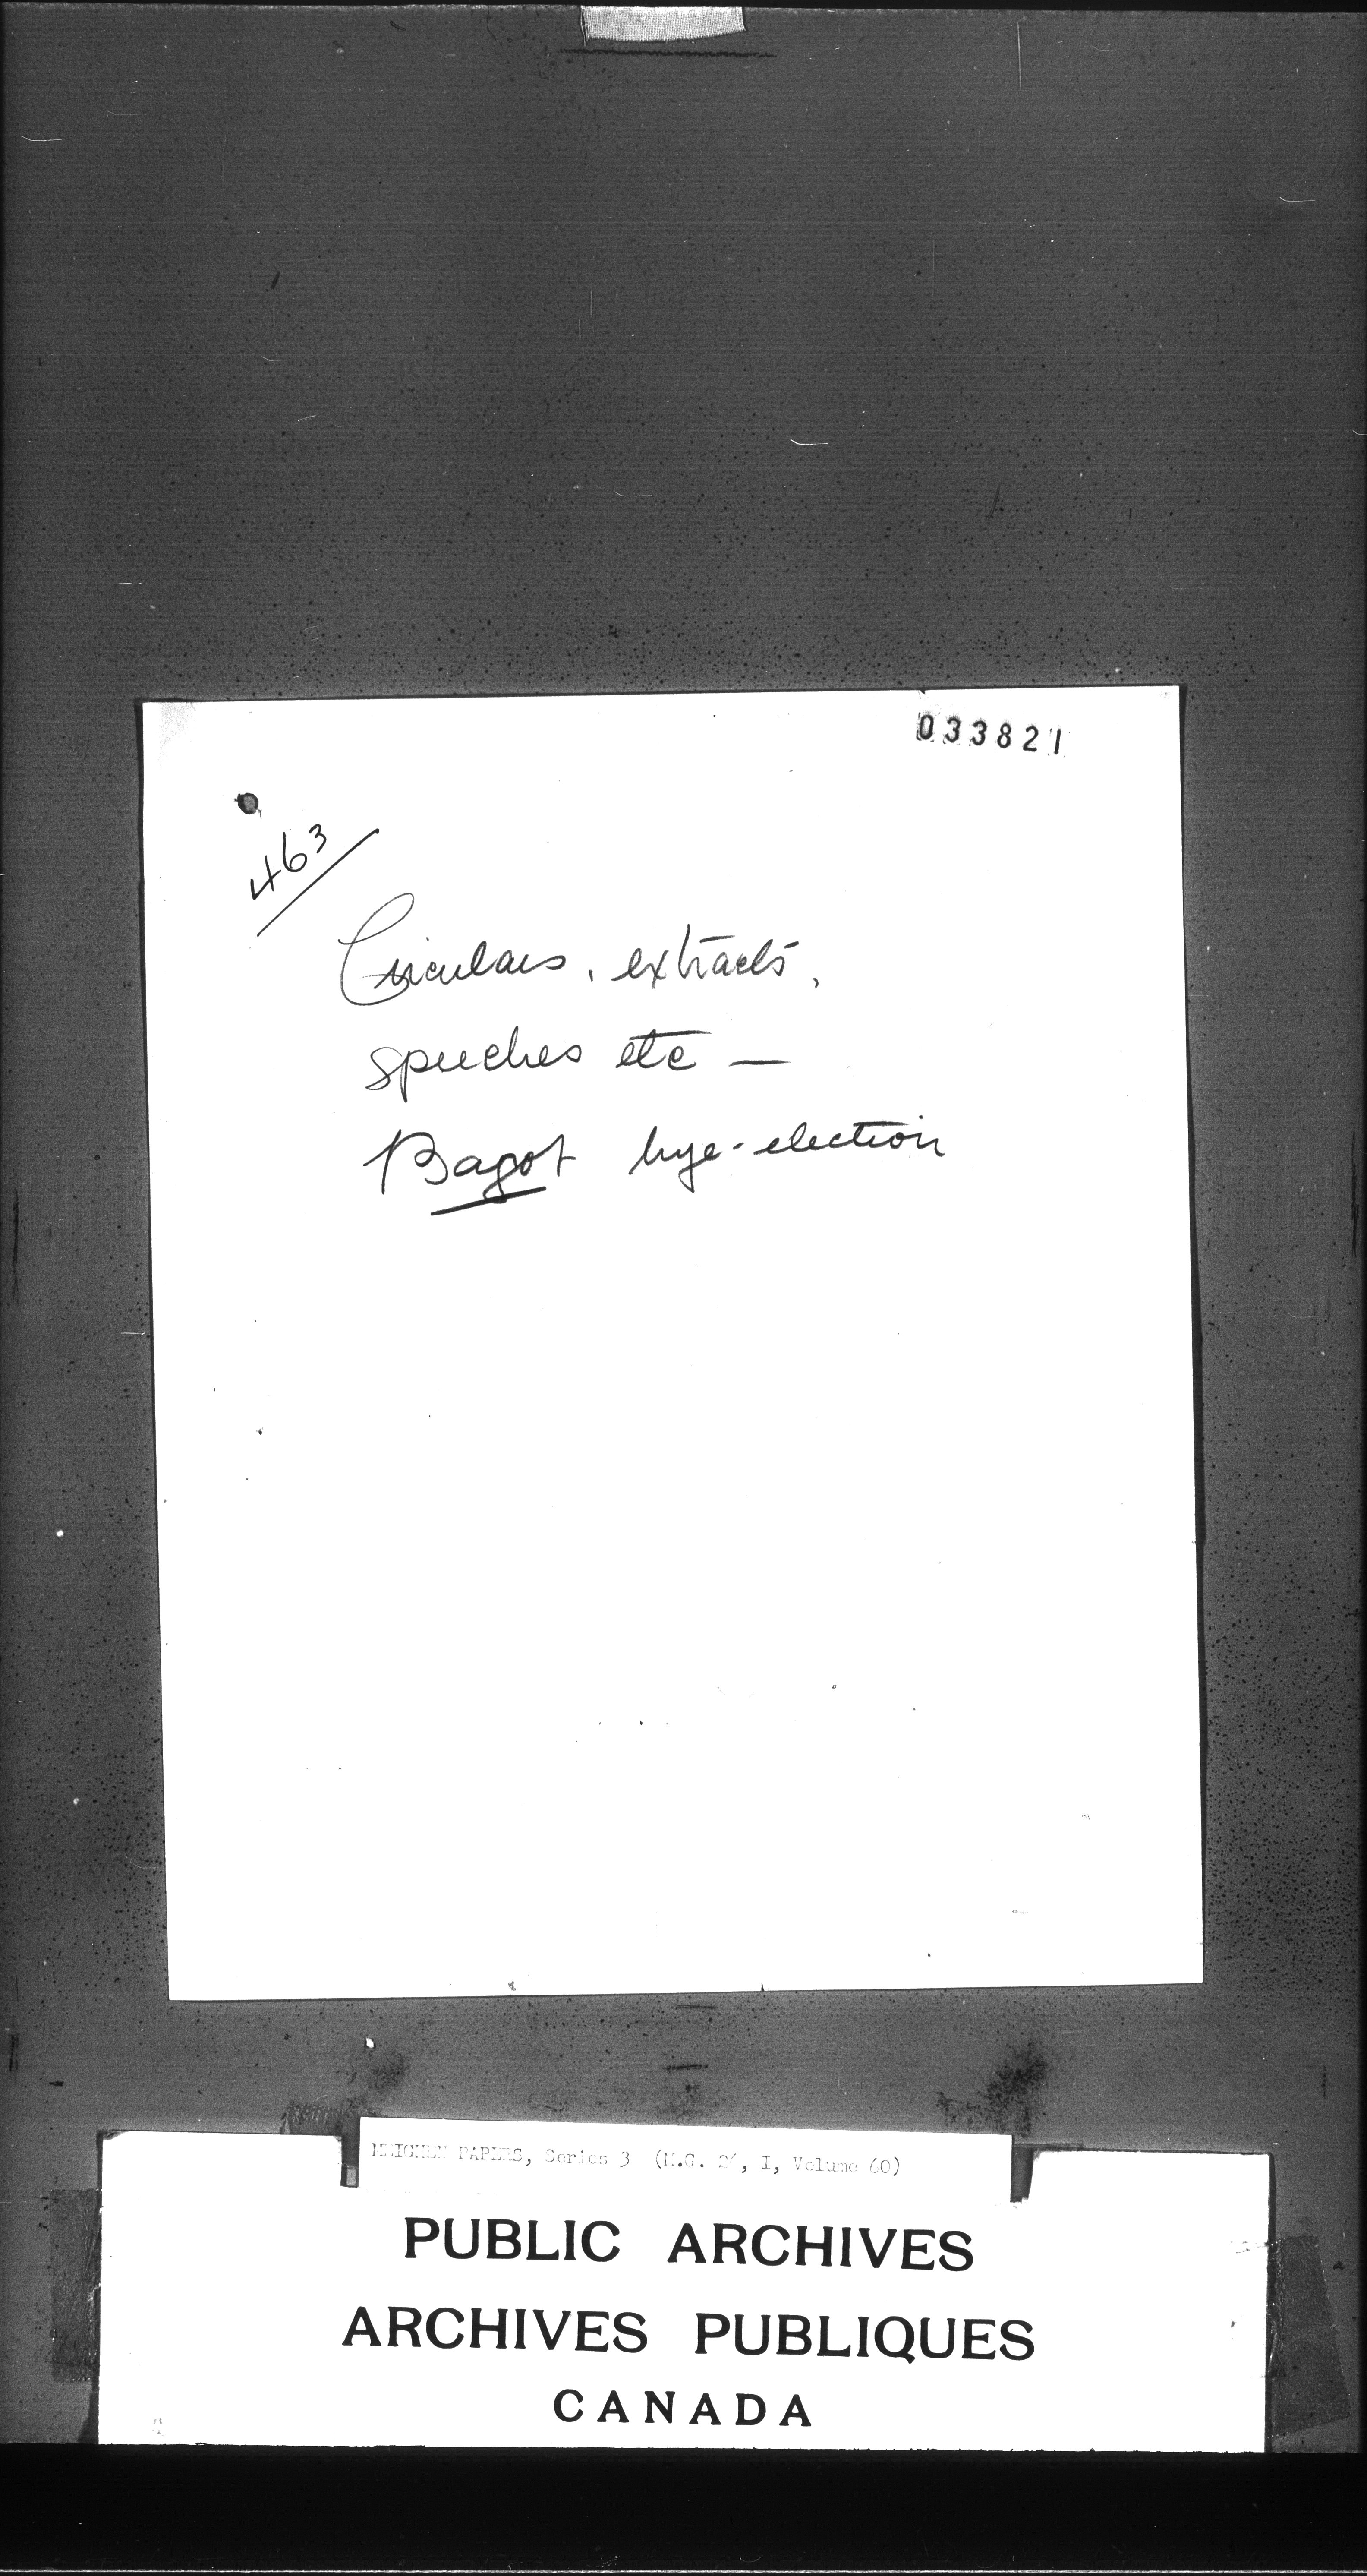 033821
463
Circulars, extracts,
speeches etc —
Bagot bye-election
MEIGHEN PAPERS, Series 3 (M.G. 26, I, Volume 60)
PUBLIC ARCHIVES
ARCHIVES PUBLIQUES
CANADA